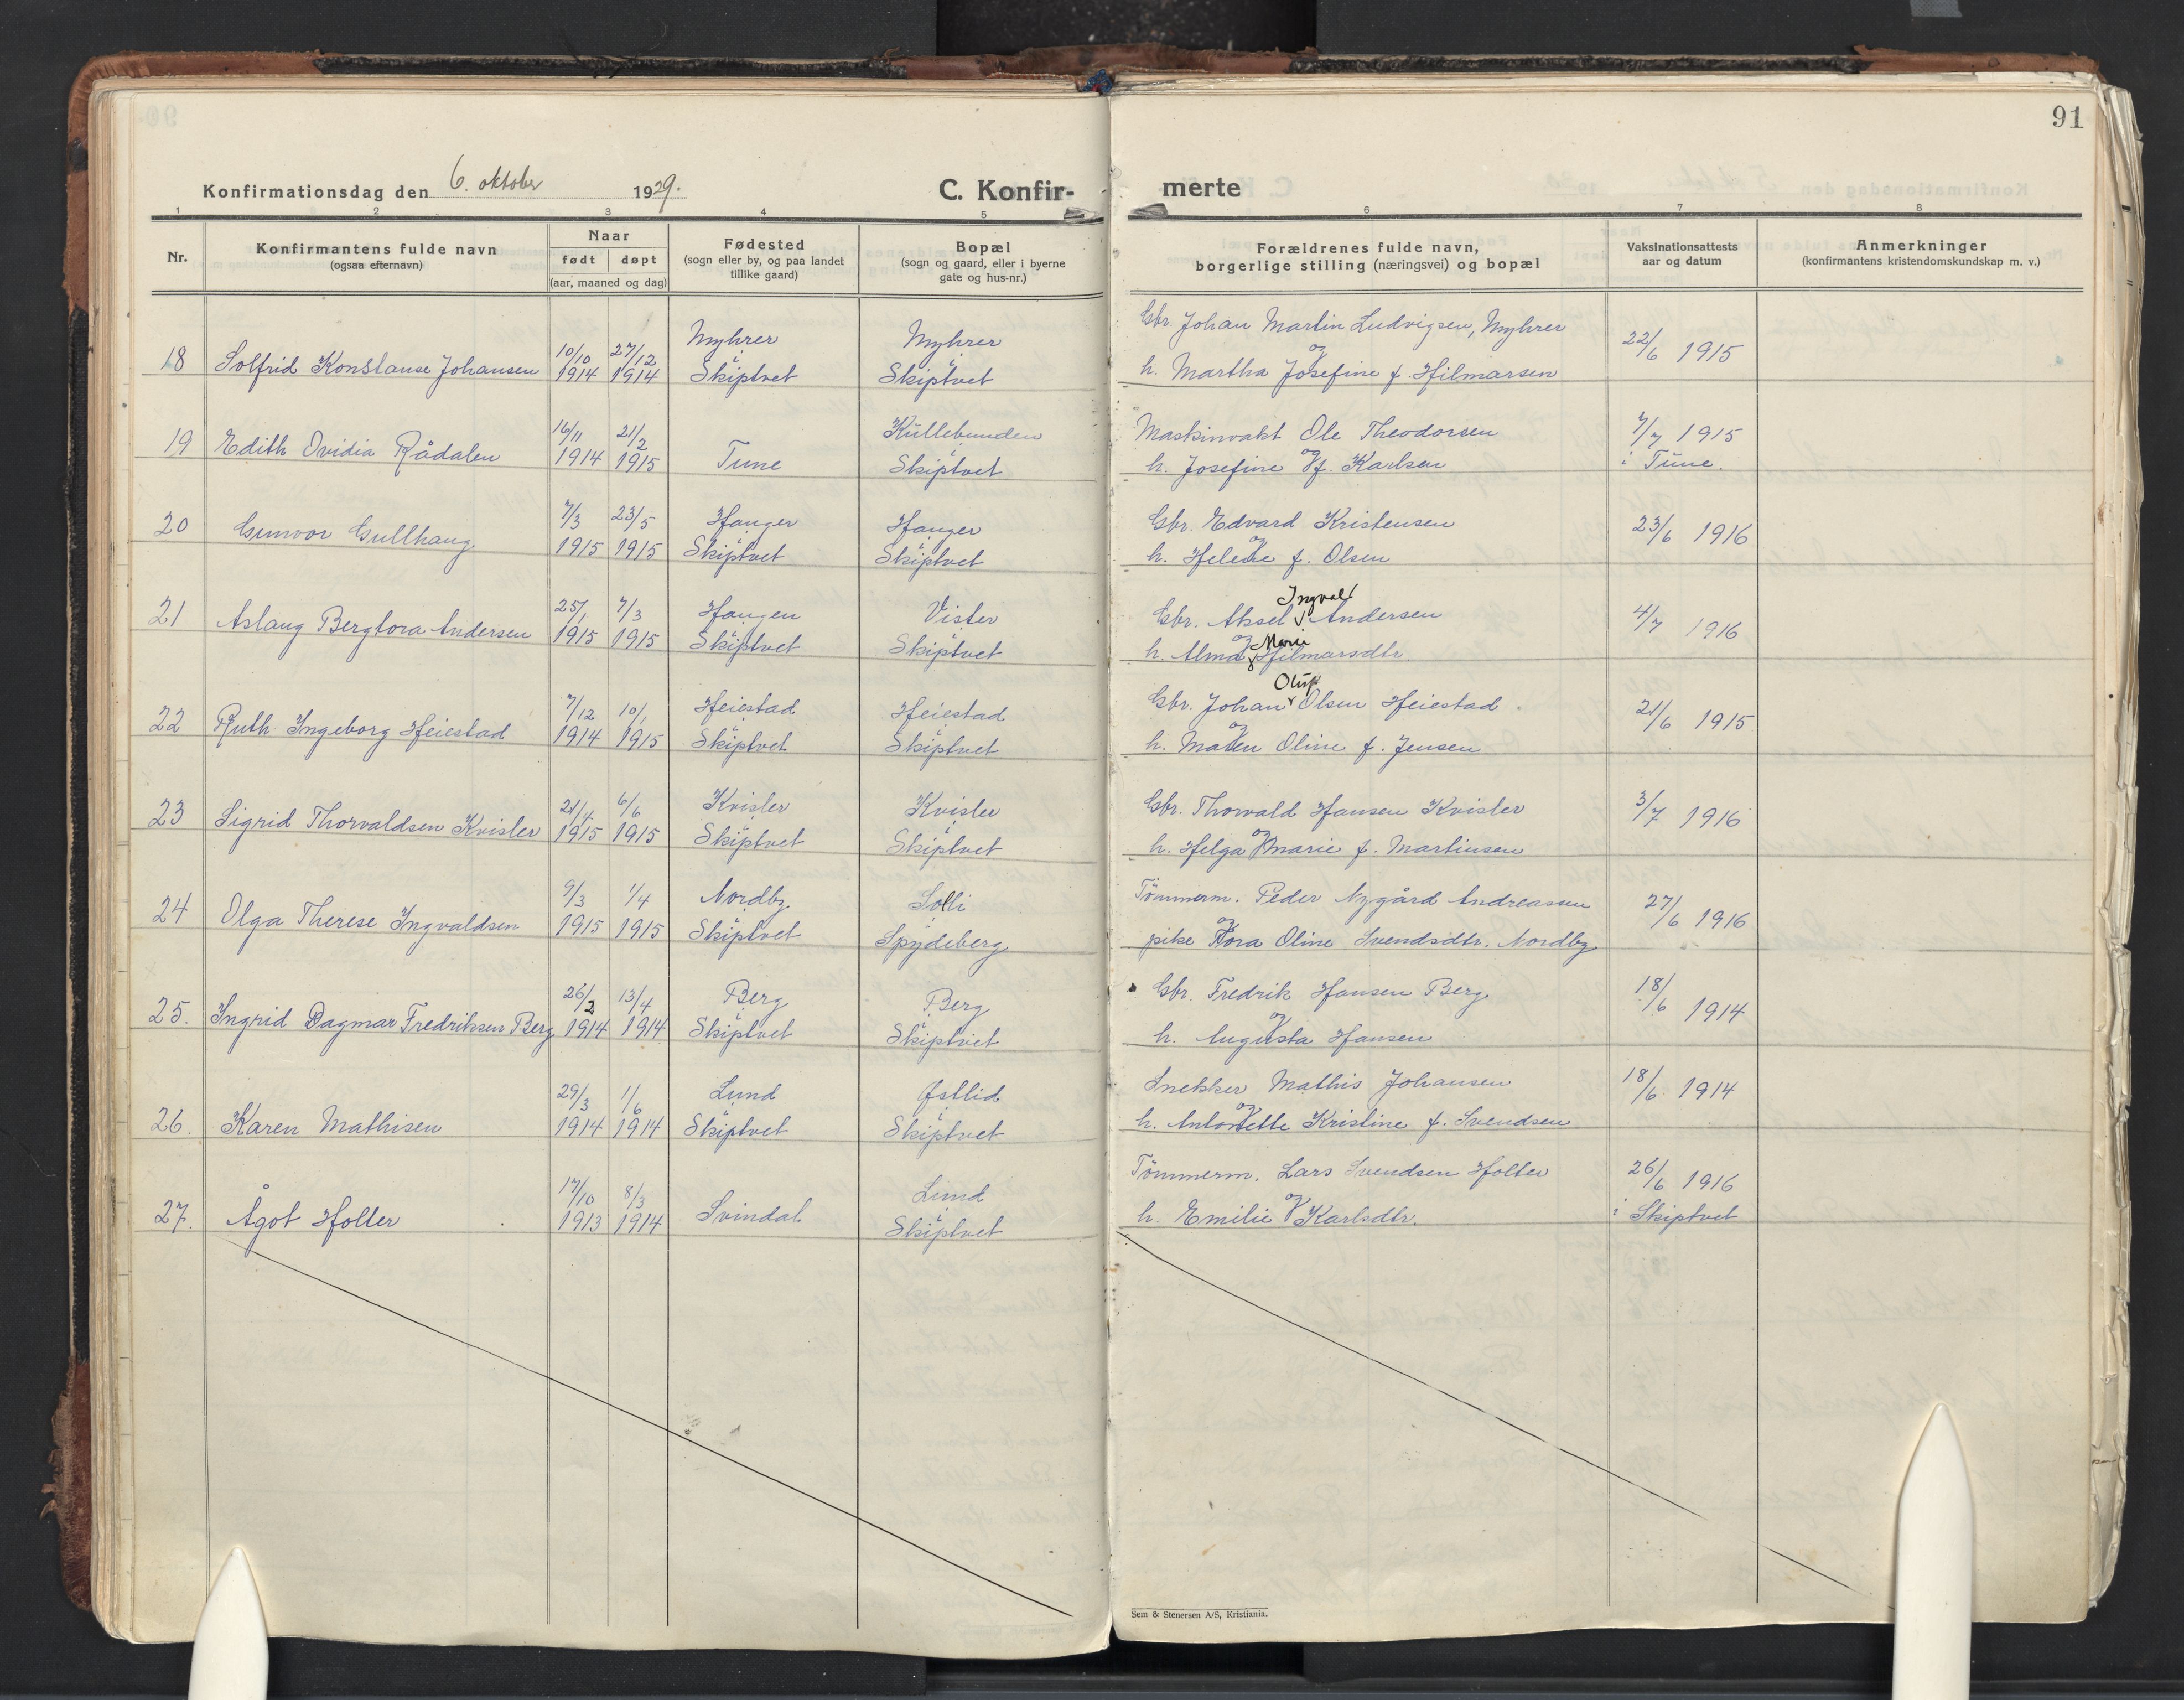 91
Konfirmationsdag den 6. oktober 1929.
C. Konfir-
merte
1 2 3 4 5 6 7 8
Nr.
Konfirmantens fulde navn
(ogsaa efternavn)
Naar
født døpt
(aar, maaned og dag)
Fødested
(sogn eller by, og paa landet
tillike gaard)
Bopæl
(sogn og gaard, eller i byerne
gate og hus-nr.)
Forældrenes fulde navn,
borgerlige stilling (næringsvei) og bopæl
Vaksinationsattests
aar og datum
Anmerkninger
(konfirmantens kristendomskundskap m. v.)
10/10 27/12 Myhrer Myhrer Gbr. Johan Martin Ludvigsen, Myhrer 22/6 1915
og
18 Solfrid Konstanse Johansen 1914 1914 Skiptvet Skiptvet h. Martha Josefine f. Hilmarsen
16/11 21/2 Kullebunden Maskinvakt Ole Theodorsen 7/7 1915
og
19 Edith Ovidia Rådalen 1914 1915 Tune Skiptvet h. Josefine f. Karlsen i Tune.
7/3 23/5 Hanger Hanger Gbr. Edvard Kristensen 23/6 1916
og
20 Gunvor Gullhaug 1915 1915 Skiptvet Skiptvet h. Helene f. Olsen
Ingval
25/1 7/3 Haugen Vister Gbr. Aksel Andersen 4/7 1916
og Marie
21 Aslaug Bergtora Andersen 1915 1915 Skiptvet Skiptvet h. Alma Hilmarsdtr.
Oluf
7/12 10/1 Heiestad Heiestad Gbr. Johan Olsen Heiestad 21/6 1915
og
22 Ruth Ingeborg Heiestad 1914 1915 Skiptvet Skiptvet h. Maren Oline f. Jensen
21/4 6/6 Kvisler Kvisler Gbr. Thorvald Hansen Kvisler 3/7 1916
og
23 Sigrid Thorvaldsen Kvisler 1915 1915 Skiptvet Skiptvet h. Helga Marie f. Martinsen
9/3 1/4 Nordby Solli Tömmerm. Peder Nygård Andreassen 27/6 1916
og
24 Olga Therese Ingvaldsen 1915 1915 Skiptvet Spydeberg pike Dora Oline Svendsdtr. Nordby
26/2 13/4 Berg Berg Gbr. Fredrik Hansen Berg 18/6 1914
og
25. Ingrid Dagmar Fredriksen Berg 1914 1914 Skiptvet Skiptvet h. Augusta Hansen
29/3 1/6 Lund Østlid Snekker Mathis Johansen 18/6 1914
og
26. Karen Mathisen 1914 1914 Skiptvet Skiptvet h. Antonette Kristine f. Svendsen
17/10 8/3 Lund Tömmerm. Lars Svendsen Holter 26/6 1916
og
27. Ågot Holter 1913 1914 Svindal Skiptvet h. Emilie Karlsdtr. i Skiptvet
Sem & Stenersen A/S, Kristiania.